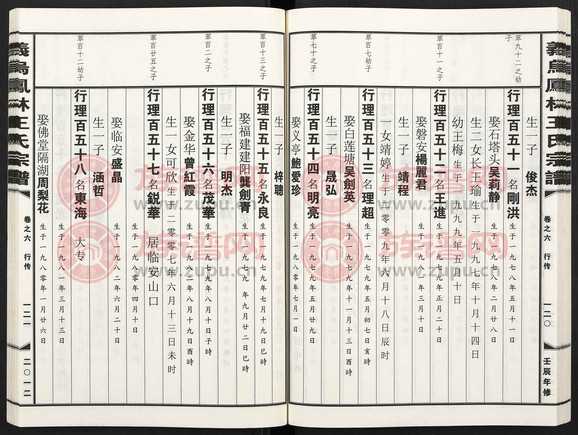 義烏鳳林王氏宗譜
卷之六 行传
一二〇
壬辰年修
莘九十二之幼子
行理百五十一名剛洪
生于一九七八年五月十一日
娶石塔头吴莉静
生一子 俊杰
生二女长王瑜生于一九九七年十月十四日
幼王梅生于一九九九年五月十日
莘百十一之子
行理百五十二名王進
生于一九七九年正月二十日
娶磐安楊麗君
生一子 靖程
一女靖婷生于二〇〇九年六月十八日辰时
莘百十之子
行理百五十三名理超
生于一九七九年五月初七日亥时
娶白莲塘吴劍英
生于一九七九年十一月十三日
生一子 晟弘
莘七十之子
行理百五十四名明亮
生于一九七九年五月廿九日
娶义亭鲍愛珍
生一子 梓聰
莘百十三之子
行理百五十五名永良
生于一九七九年七月十九日巳时
娶福建建阳龔劍青
生于一九七九年九月廿二日巳时
生一子 明杰
莘百二之子
行理百五十六名茂華
生于一九七九年八月十日子时
娶金华曾紅霞
生于一九八二年八月十九日酉时
生一女可欣生于二〇〇七年六月十三日未时
莘百廿五之子
行理百五十七名鋭華 居临安山口
生于一九八〇年四月十日
娶临安盛晶
生于一九八二年六月二十日
生一子 涵哲
莘百十二幼子
行理百五十八名東海 大专
生于一九八一年三月十三日
娶佛堂隔湖周梨花
生于一九八〇年一月廿六日
義烏鳳林王氏宗譜
卷之六 行传
一二一
二〇一二
龙蚕网
www.zupu.cn